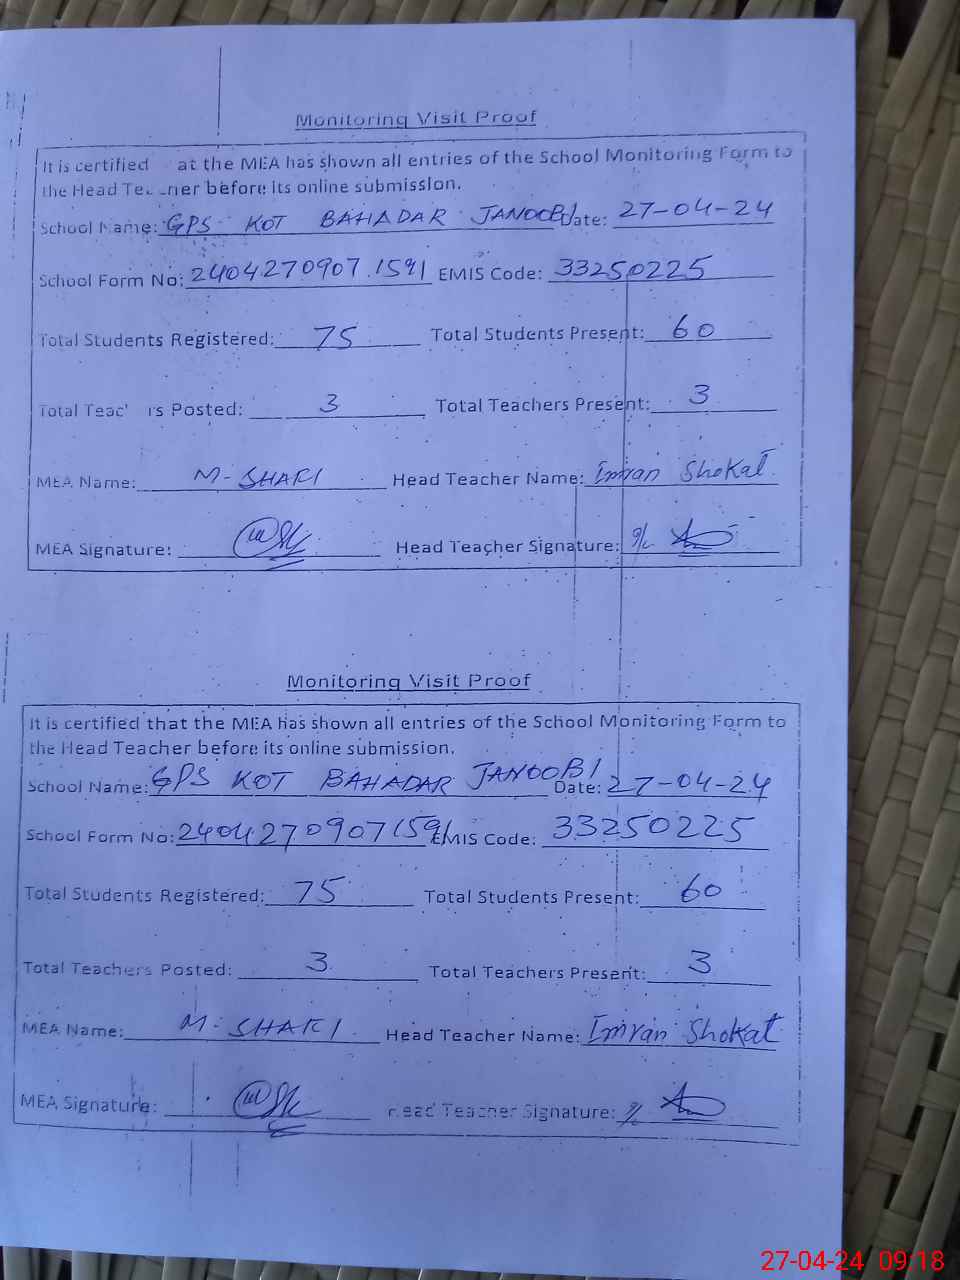 Monitoring Visit Proof
It is certified at the MEA has shown all entries of the School Monitoring Form to
the Head Te. .ner before its online submission.
School Name: GPS KOT BAHADAR JANOOBI Date: 27-04-24
School Form No: 24042709071591 EMIS Code: 33250225
Total Students Registered: 75 Total Students Present: 60
Total Teac' rs Posted: 3 Total Teachers Present: 3
MEA Name: M-SHAFI Head Teacher Name: Imran Shokat
MEA Signature: Head Teacher Signature:
Monitoring Visit Proof
It is certified that the MEA has shown all entries of the School Monitoring Form to
the Head Teacher before its online submission.
School Name: GPS KOT BAHADAR JANOOBI Date: 27-04-24
School Form No: 24042709071591 EMIS Code: 33250225
Total Students Registered: 75 Total Students Present: 60
Total Teachers Posted: 3 Total Teachers Present: 3
MEA Name: M-SHAFI Head Teacher Name: Imran Shokat
MEA Signature: Head Teacher Signature:
27-04-24 09:18